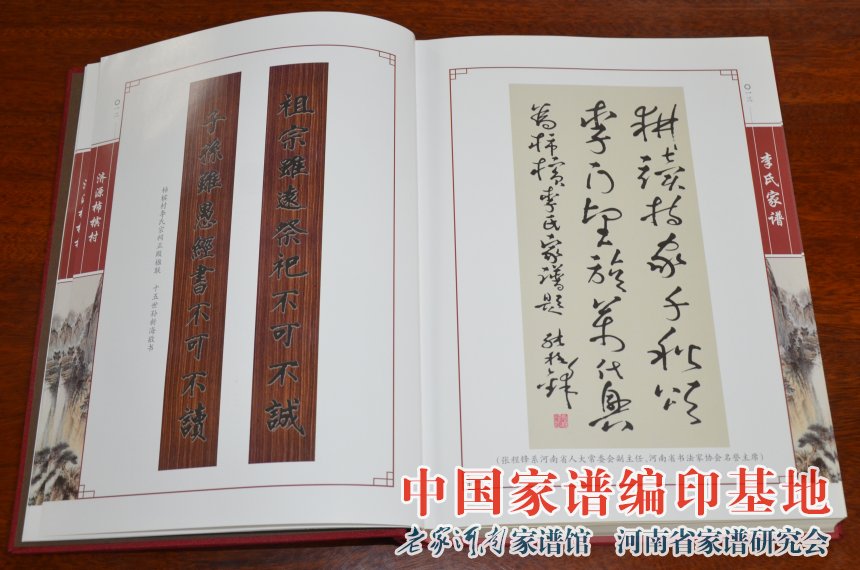 祖宗雖遠祭祀不可不誠
子孫雖愚經書不可不讀
柿槟村李氏宗祠正殿楹联 十五世孙新海敬书
济源柿槟村
〇一二
〇一三
李氏家谱
耕讀持家千秋頌
李門望族萬代興
為柿檳李氏家譜題 張程鋒
(张程锋系河南省人大常委会副主任、河南省书法家协会名誉主席)
中国家谱编印基地
老家河南家谱馆 河南省家谱研究会